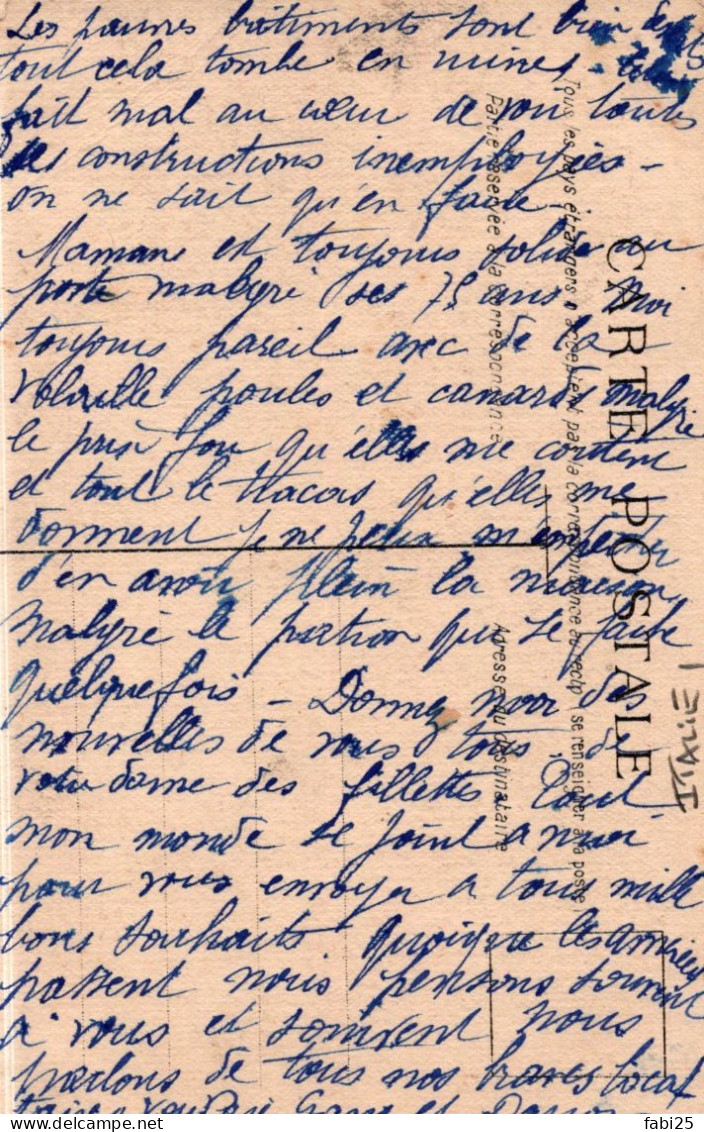 Les pauvres bâtiments sont bien
tout cela tombe en ruines
fait mal au cœur de voir toutes
les constructions inemployées -
on ne sait qu'en faire -
Maman est toujours solide au
poste malgré ses 75 ans moi
toujours pareil avec de la
volaille poules et canards malgré
le prix fou qu'elles me coûtent
et tout le tracas qu'elles me
donnent je ne peux m'empêcher
d'en avoir plein la maison
malgré le qui se fache
quelquefois - Donnez moi des
nouvelles de vous tous de
votre dame des fillettes Tout
mon monde se joint a moi
pour vous envoyer a tous mille
bons souhaits quoique les années
passent nous pensons souvent
a vous et souvent nous
parlons de tous nos braves locat
CARTE POSTALE
Tous les pays étrangers n'acceptent pas la correspondance au recto (se renseigner à la poste)
Partie réservée à la correspondance
Adresse du destinataire
ITALIE
fabi25